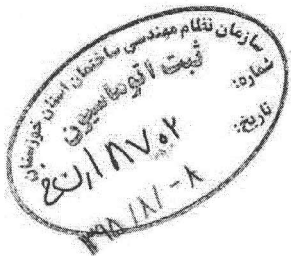 سازمان نظام مهندسی ساختمان استان خوزستان
ثبت اتوماسیون
شماره:
۱۸۷۰۲
تاریخ:
۳۹۵/۸/-۸